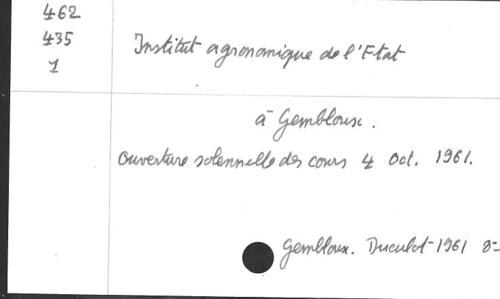 462
435
1
Institut agronomique de l'Etat
à Gembloux.
ouverture solennelle des cours 4 Oct. 1961.
Gembloux. Duculot-1961 8=